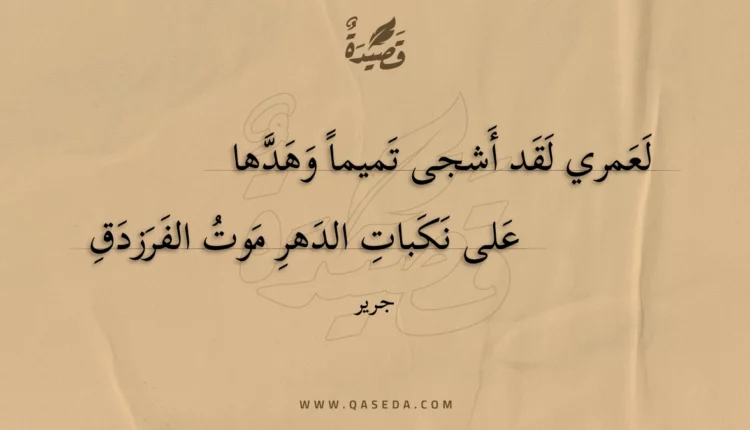 قَصِيدَةٌ
لَعَمري لَقَد أَشجى تَميماً وَهَدَّها
عَلى نَكَباتِ الدَهرِ مَوتُ الفَرَزدَقِ
جرير
WWW.QASEDA.COM